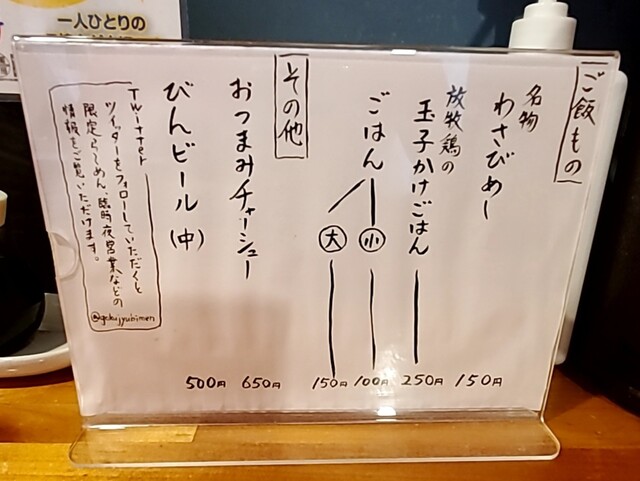 一人ひとりの
ご飯もの
名物
わさびめし
150円
放牧鶏の
玉子かけごはん
250円
ごはん
小
100円
大
150円
その他
おつまみチャーシュー
650円
びんビール(中)
500円
Twitter
ツイッターをフォローしていただくと
限定らーめん、臨時夜営業などの
情報をご覧いただけます。
@gokujyubimen